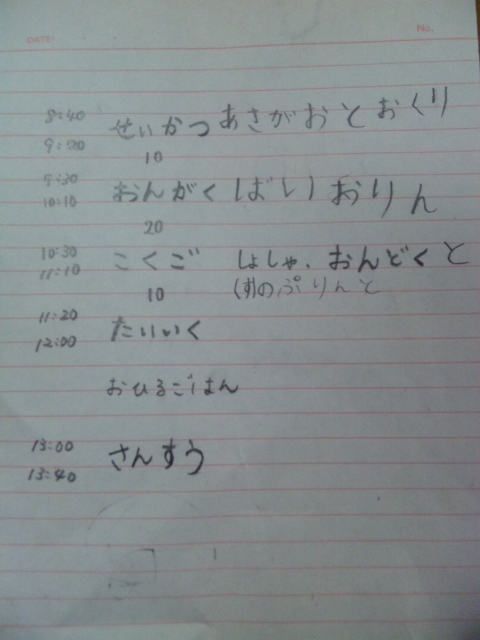 DATE:
No.
8:40 せいかつ あさがおと おくり
9:20
10
9:30 おんがく ばいおりん
10:10
20
10:30 こくご しょしゃ、おんどくと
11:10 (す)のぷりんと
10
11:20 たいいく
12:00
おひるごはん
13:00 さんすう
13:40